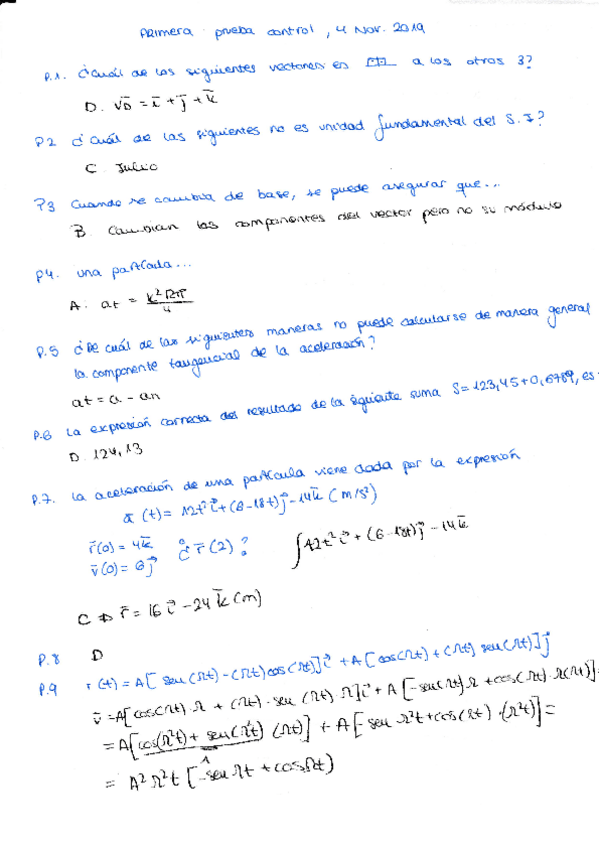 Primera prueba control, 4 Nov. 2019
P.1. ¿Cuál de los siguientes vectores es a los otros 3?
D. v̄D = ī + j̄ + k̄
P2 ¿Cuál de las siguientes no es unidad fundamental del S.I?
C Julio
P3 Cuando se cambia de base, se puede asegurar que...
B. Cambian las componentes del vector pero no su módulo
P4. una partícula...
A: at = k²Rπ/4
P.5 ¿De cuál de las siguientes maneras no puede calcularse de manera general
la componente tangencial de la aceleración?
at = a - an
P.6 La expresión correcta del resultado de la siguiente suma S=123,45+0,6789, es
D. 124,13
P.7. la aceleración de una partícula viene dada por la expresión
ā (t) = 12t² i⃗ + (6-18t) j⃗ - 14k̄ (m/s²)
r̄(0) = 4k̄ ¿ r̄ (2) ? ∫12t² i⃗ + (6-18t) j⃗ - 14k̄
v̄(0) = 6 j⃗
C ⇒ r̄ = 16 i⃗ - 24 k̄ (m)
P.8 D
P.9 r (t) = A[ sen(Ωt) - (Ωt)cos(Ωt)] i⃗ + A[cos(Ωt) + (Ωt) sen(Ωt)] j⃗
v̄ = A[cos(Ωt)·Ω + (Ωt)·sen(Ωt)·Ω] i⃗ + A[-sen(Ωt)Ω + cos(Ωt)·Ω(Ωt)]
= A[cos(Ω²t) + sen(Ω²t) (Ωt)] + A[-sen Ω²t + cos(Ωt)·(Ω²t)] =
= A²Ω²t [-sen Ωt + cos Ωt)